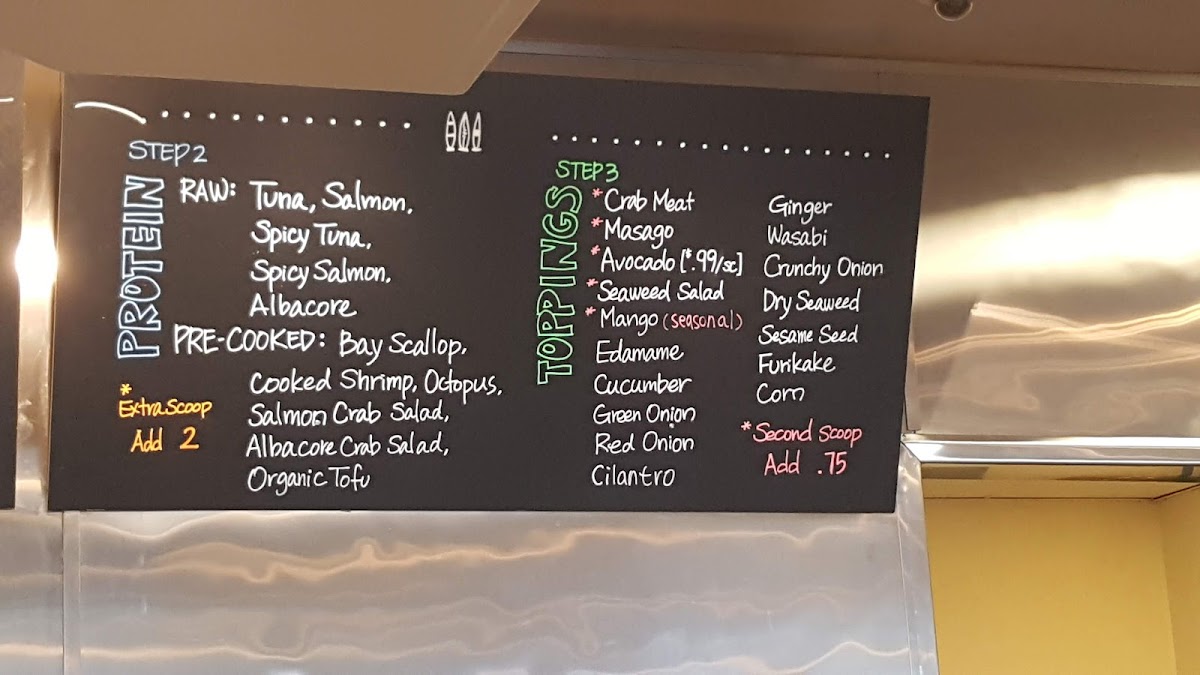 STEP 2
PROTEIN
RAW: Tuna, Salmon,
Spicy Tuna,
Spicy Salmon,
Albacore
PRE-COOKED: Bay Scallop,
Cooked Shrimp, Octopus,
Salmon Crab Salad,
Albacore Crab Salad,
Organic Tofu
*
Extra Scoop
Add 2
STEP 3
TOPPINGS
*Crab Meat
*Masago
*Avocado [*.99/sc]
*Seaweed Salad
*Mango (seasonal)
Edamame
Cucumber
Green Onion
Red Onion
Cilantro
Ginger
Wasabi
Crunchy Onion
Dry Seaweed
Sesame Seed
Furikake
Corn
*Second Scoop
Add .75